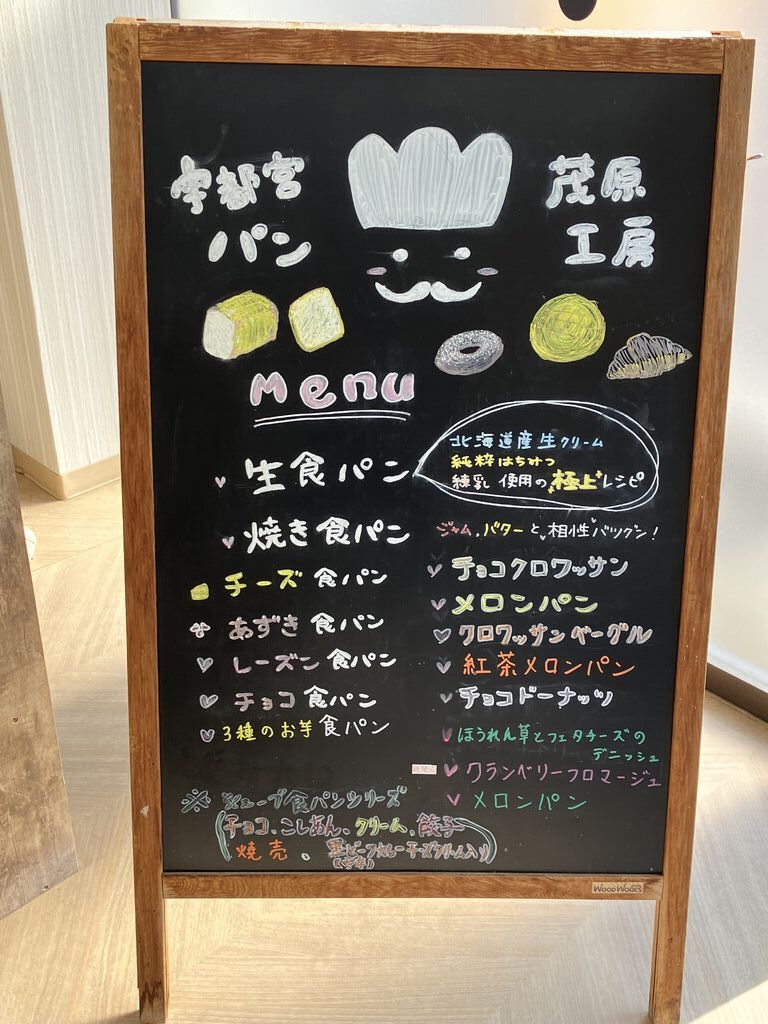 宇都宮
パン
茂原
工房
menu
生食パン
北海道産生クリーム
純粋はちみつ
練乳 使用の極上レシピ
焼き食パン
ジャム、バターと相性バツグン!
チーズ食パン
あずき食パン
レーズン食パン
チョコ食パン
3種のお芋食パン
チョコクロワッサン
メロンパン
クロワッサンベーグル
紅茶メロンパン
チョコドーナッツ
ほうれん草とフェタチーズの
デニッシュ
クランベリーフロマージュ
メロンパン
※ キューブ食パンシリーズ
(チョコ、こしあん、クリーム、餃子
焼売、黒ビーフカレーチーズクリーム入り)
Wood Works